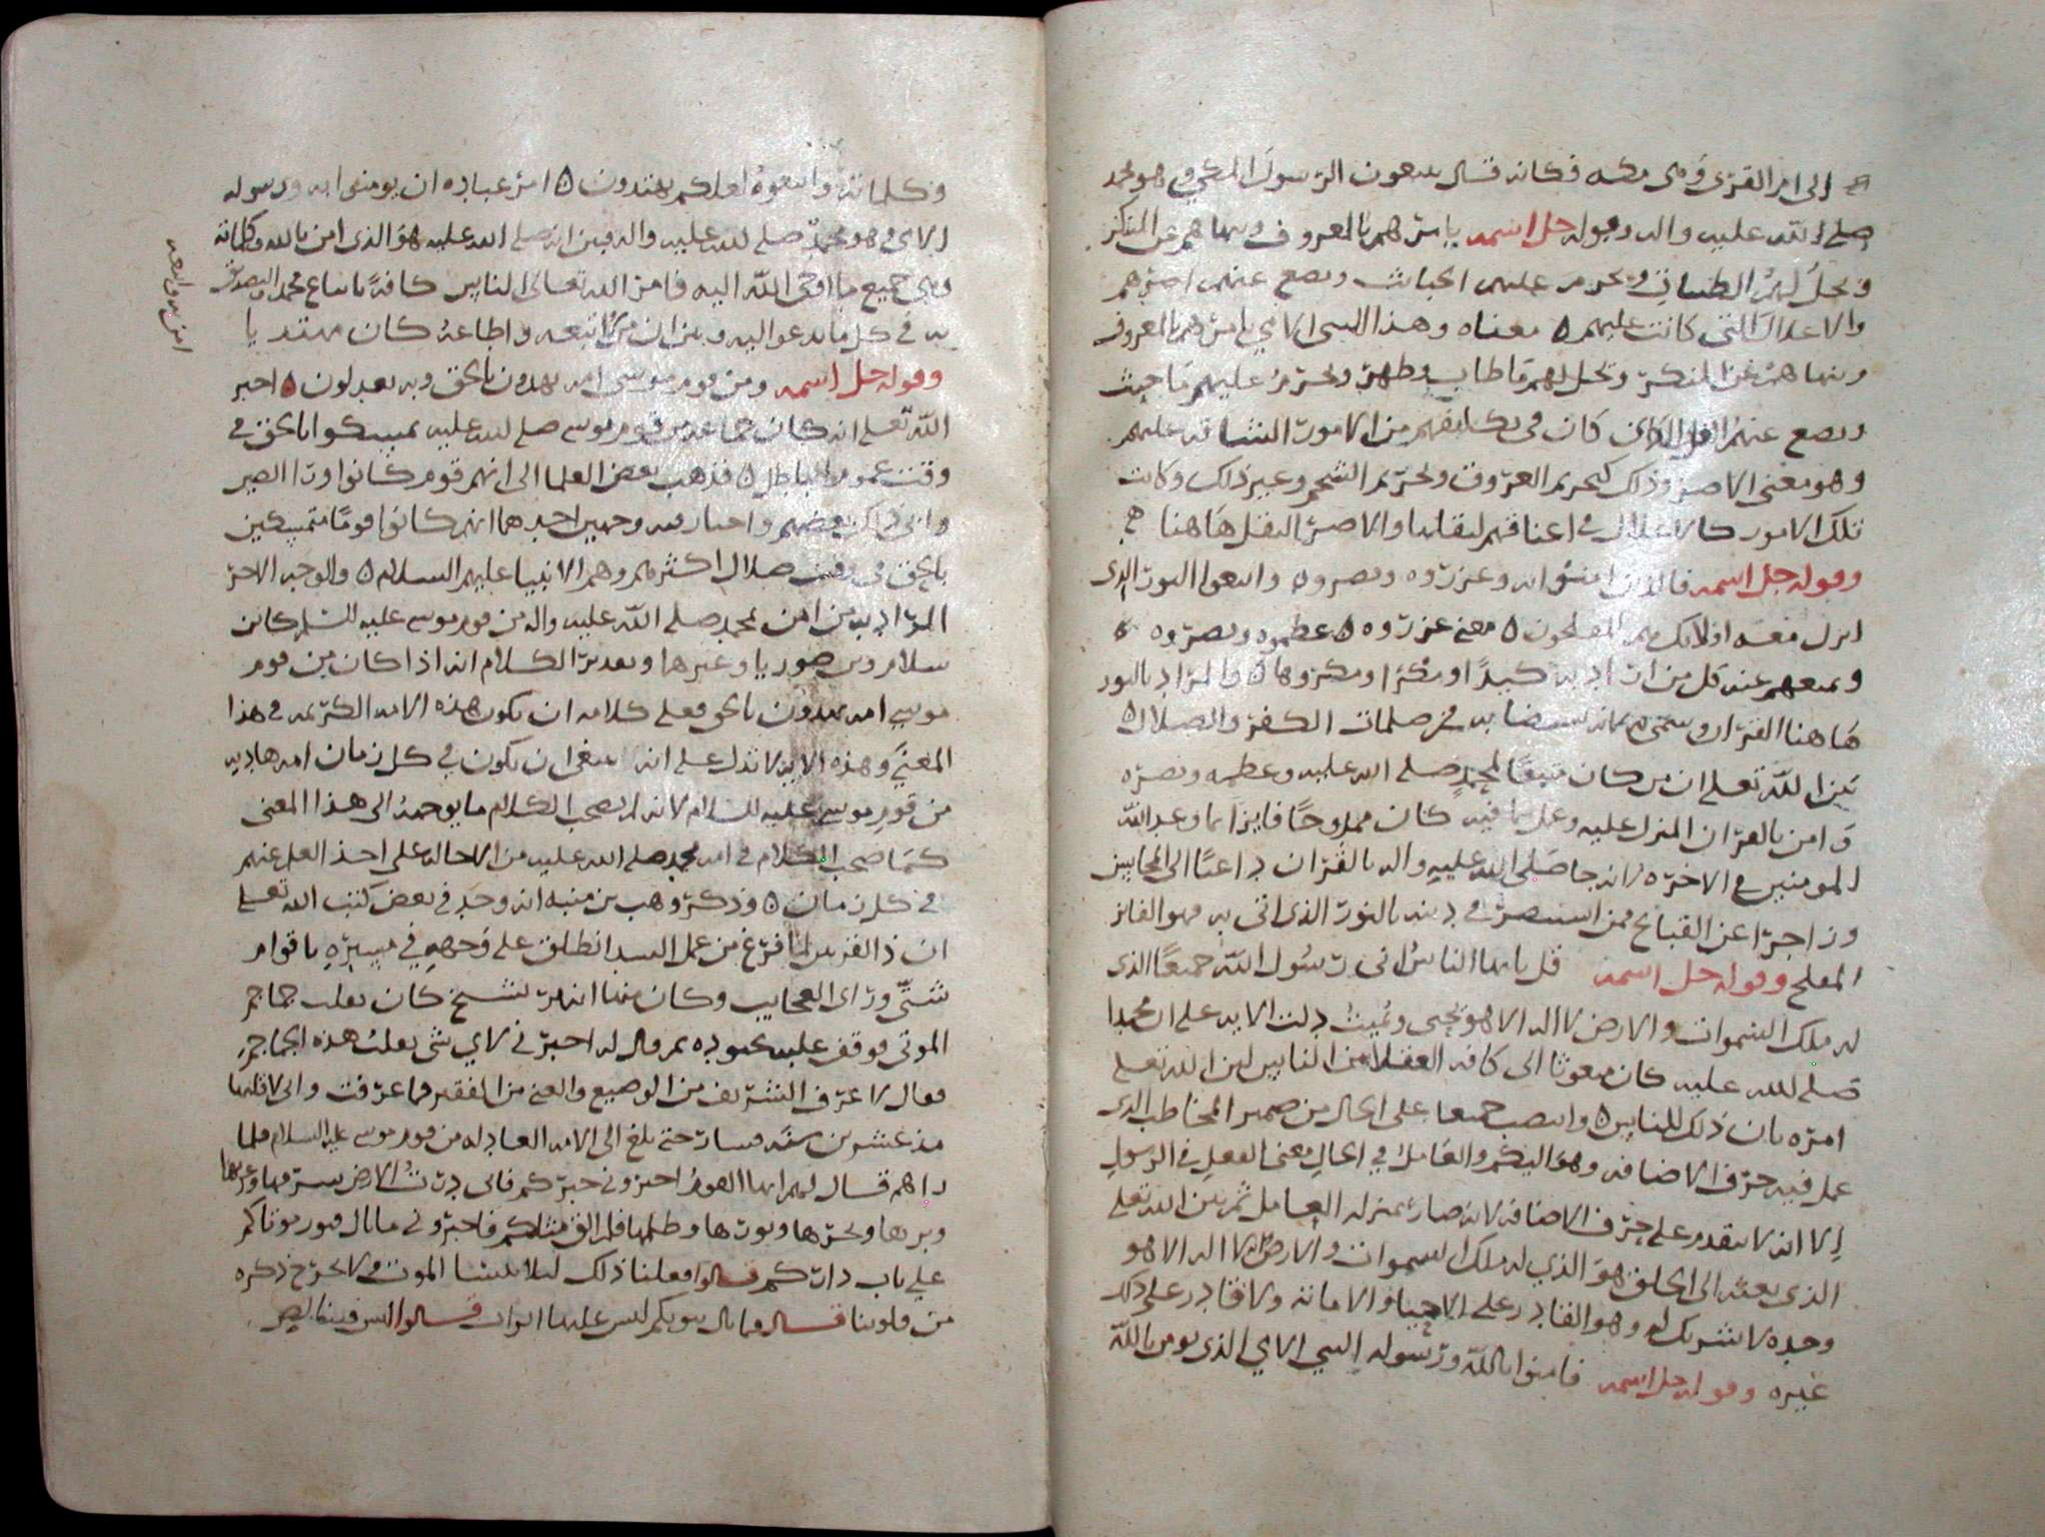 الى ام القرى وهي مكه فكانه قال يتبعون الرسول المكي وهو محمد
صلى الله عليه واله وقوله جل اسمه يامرهم بالمعروف وينهاهم عن المنكر
ويحل لهم الطيبات ويحرم عليهم الخبائث ويضع عنهم اصرهم
والاغلال التي كانت عليهم ه معناه وهذا النبي الامي يامرهم بالمعروف
وينهاهم عن المنكر ويحل لهم ما طاب وطهر ويحرم عليهم ما خبث
ويضع عنهم الثقل الذي كان في تكليفهم من الامور الشاقه عليهم
وهو معنى الاصر وذلك كتحريم العروق وتحريم الشحم وغير ذلك وكانت
تلك الامور كالاغلال في اعناقهم لثقلها والاصر الثقل هاهنا
وقوله جل اسمه فالذين امنوا به وعزروه ونصروه واتبعوا النور الذي
انزل معه اولائك هم المفلحون ه معنى عزروه ه عظموه ونصروه ه
ومنعهم عنه كل من اراد به كيدا او مكرا ومكروها ه والمراد بالنور
هاهنا القران وسمي به لانه يستضا به في ظلمات الكفر والضلال ه
بين الله تعلى ان من كان متبعا لمحمد صلى الله عليه وعظمه ونصره
وامن بالقران المنزل عليه وعمل بما فيه كان ممدوحا فايزا بما وعد الله
المومنين في الاخره لانه جا صلى الله عليه واله بالقران داعيا الى المحاسن
وزاجرا عن القبائح فمن استبصر في دينه بالنور الذي اتى به فهو الفائز
المفلح وقوله جل اسمه قل يايها الناس اني رسول الله جميعا الذي
له ملك السموات والارض لا اله الا هو يحيي ويميت دلت الايه على ان محمدا
صلى الله عليه كان مبعوثا الى كافه العقلا من الناس لان الله تعلى
امره بان ذلك للناس ه وانتصب جميعا على الحال من ضمير المخاطب الذي
عمل فيه حرف الاضافه وهو اليكم والعامل في الحال معنى الفعل في الرسول
الا انه لا يتقدم على حرف الاضافه لانه صار بمنزله العامل ثم بين الله تعلى
الذي بعثه الى الخلق هو الذي له ملك السموات والارض لا اله الا هو
وحده لا شريك له وهو القادر على الاحيا والاماته ولا قادر على ذلك
غيره وقوله جل اسمه فامنوا بالله ورسوله النبي الامي الذي يومن بالله
وكلماته واتبعوه لعلكم تهتدون ه امر عباده ان يومنوا به ورسوله
الامي وهو محمد صلى الله عليه واله وبين انه صلى الله عليه هو الذي امن بالله وكلماته
وهي جميع ما اوحى الله اليه فامر الله تعالى الناس كافة باتباع محمد والتصديق
به في كل ما يدعو اليه وبين ان من اتبعه واطاعه كان مهتديا
وقوله جل اسمه ومن قوم موسى امه يهدون بالحق وبه يعدلون ه اخبر
الله تعلى انه كان جماعه من قوم موسى صلى الله عليه تمسكوا بالحق في
وقت عموم الباطل ه فذهب بعض العلما الى انهم قوم كانوا ورا الصين
وانكر بعضهم واختار فيه وجهين احدهما انهم كانوا قوما متمسكين
بالحق في وقت ضلال اكثرهم وهم الانبيا عليهم السلام ه والوجه الاخر
المراد به من امن بمحمد صلى الله عليه واله من قوم موسى عليه السلم كابن
سلام وبن صوريا وغيرها وتقدير الكلام انه اذا كان من قوم
موسى امه يهدون بالحق فعلى كلامه ان يكون هذه الامه الكريمه في هذا
المعنى وهذه الايه لا تدل على انه ينبغي ان يكون في كل زمان امه هاديه
من قوم موسى عليه السلام لانه لم يصحب الكلام ما يوجهه الى هذا المعنى
كما صحب الكلام في امه محمد صلى الله عليه من الاحاله على اخذ العلم عنهم
في كل زمان ه وذكر وهب بن منبه انه وجد في بعض كتب الله تعلى
ان ذا القرنين لما فرغ من عمل السد انطلق على وجهه في مسيره باقوام
شتى وراى العجايب وكان منها انه مر بشيخ كان يقلب جماجم
الموتى فوقف عليه بجنوده ثم قال له اخبرني لاي شي يقلب هذه الجماجم
فقال لاعرف الشريف من الوضيع والغني من الفقير فما عرفت واني لاقلبها
مذ عشرين سنه فسار حتى بلغ الى الامه العادله من قوم موسى عليه السلام فلما
راهم قال لهم ايها القوم اخبروني خبركم فاني درت الارض شرقها وغربها
وبرها وبحرها ونورها وظلمها فلم الق مثلكم فاخبروني ما بال قبور موتاكم
على باب داركم قالوا فعلنا ذلك ليلا ننسا الموت ولا يخرج ذكره
من قلوبنا قال فما بال بيوتكم ليس عليها ابواب قالوا ليس فينا لص